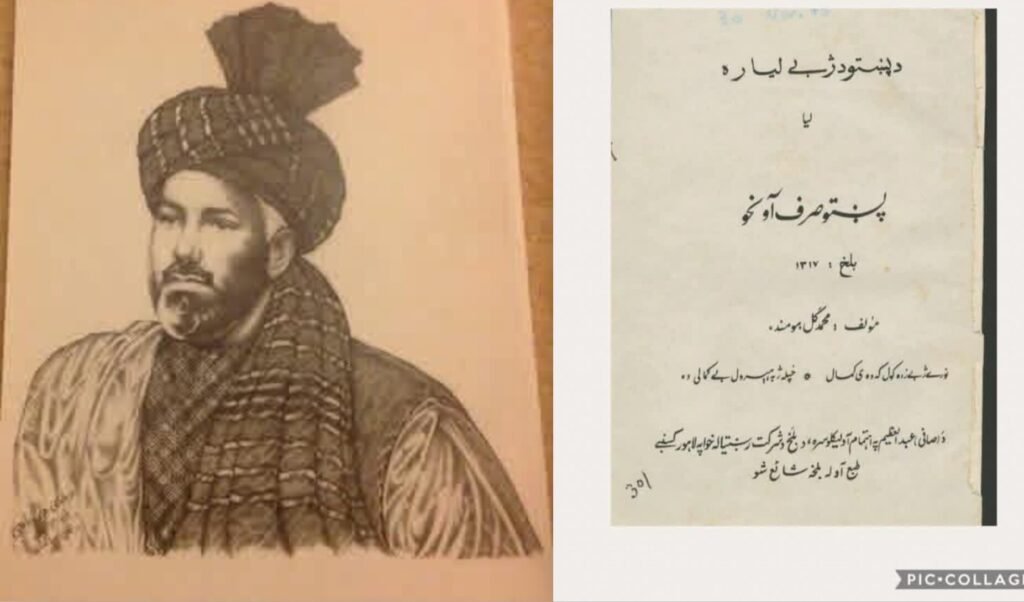 د پښتو د ژبے لیاره
لیا
پښتو صرف آو نحو
بلخ : ۱۳۱۷
مؤلف : محمد گل مومند،
نورے ژبے زده کول که وی کمال * خپله ژبه هېرول بے کمالی ده
د اصافی) عبدالعظیم په اهتمام آولیکلو سره، د بلخ د شرکت رښتیا له خوا په لاهور کښے
طبع آو له بلخه شائع شو
301
PIC•COLLAGE